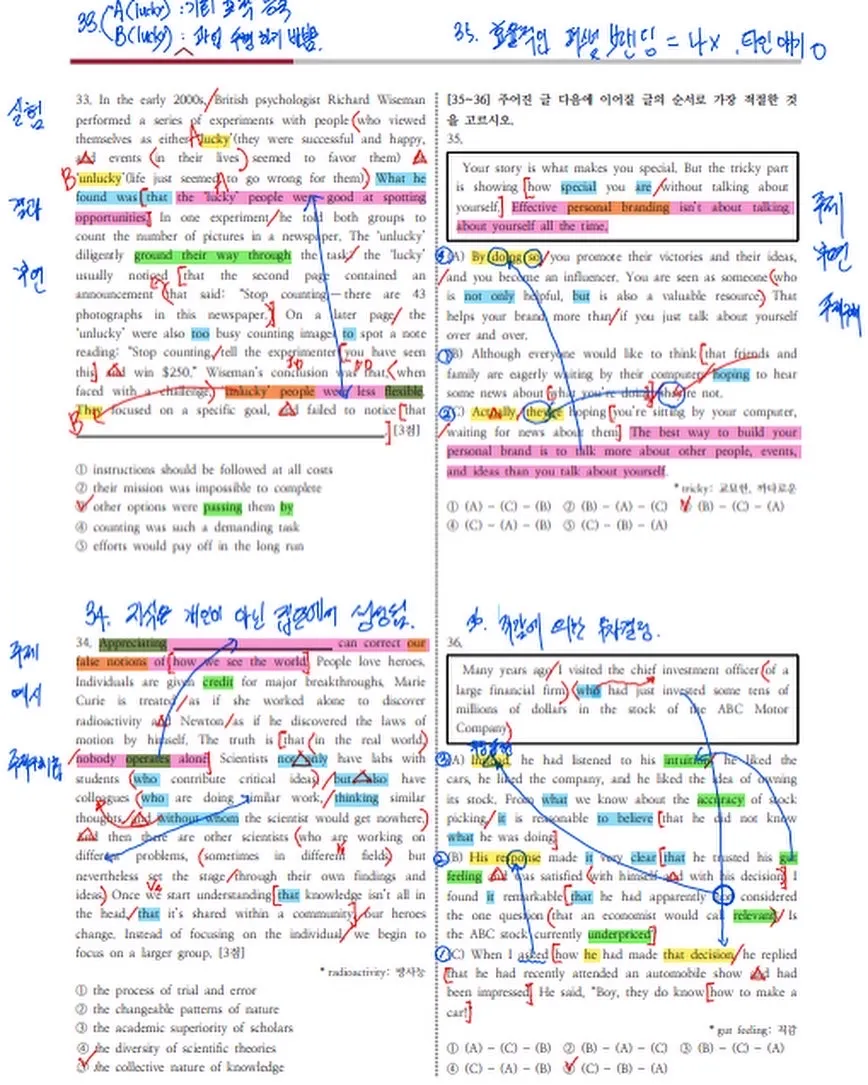 33. A(lucky) : 기회 포착 능숙
B(lucky) : 과업 수행 하기 바쁨.
35. 효율적인 퍼스널 브랜딩 = 나X, 타인 얘기 O
실험
결과
부연
33. In the early 2000s, British psychologist Richard Wiseman
performed a series of experiments with people who viewed
themselves as either 'lucky' (they were successful and happy,
and events in their lives seemed to favor them)
'unlucky' (life just seemed to go wrong for them). What he
found was that the 'lucky' people were good at spotting
opportunities. In one experiment he told both groups to
count the number of pictures in a newspaper. The 'unlucky'
diligently ground their way through the task; the 'lucky'
usually noticed that the second page contained an
announcement that said: "Stop counting — there are 43
photographs in this newspaper." On a later page, the
'unlucky' were also too busy counting images to spot a note
reading: "Stop counting, tell the experimenter you have seen
this, and win $250." Wiseman's conclusion was that, when
faced with a challenge, 'unlucky' people were less flexible.
They focused on a specific goal, and failed to notice that
[3점]
① instructions should be followed at all costs
② their mission was impossible to complete
other options were passing them by
④ counting was such a demanding task
⑤ efforts would pay off in the long run
34. 지식은 개인이 아닌 집단에서 설명됨.
주제
예시
34. Appreciating can correct our
false notions of how we see the world. People love heroes.
Individuals are given credit for major breakthroughs. Marie
Curie is treated as if she worked alone to discover
radioactivity and Newton as if he discovered the laws of
motion by himself. The truth is that in the real world,
nobody operates alone. Scientists not only have labs with
students who contribute critical ideas, but also have
colleagues who are doing similar work, thinking similar
thoughts, and without whom the scientist would get nowhere.
And then there are other scientists who are working on
different problems, sometimes in different fields, but
nevertheless set the stage through their own findings and
ideas. Once we start understanding that knowledge isn't all in
the head, that it's shared within a community, our heroes
change. Instead of focusing on the individual, we begin to
focus on a larger group. [3점]
* radioactivity: 방사능
① the process of trial and error
② the changeable patterns of nature
③ the academic superiority of scholars
④ the diversity of scientific theories
the collective nature of knowledge
[35~36] 주어진 글 다음에 이어질 글의 순서로 가장 적절한 것
을 고르시오.
35.
Your story is what makes you special. But the tricky part
is showing how special you are without talking about
yourself. Effective personal branding isn't about talking
about yourself all the time.
주제
부연
(A) By doing so, you promote their victories and their ideas,
and you become an influencer. You are seen as someone who
is not only helpful, but is also a valuable resource. That
helps your brand more than if you just talk about yourself
over and over.
(B) Although everyone would like to think that friends and
family are eagerly waiting by their computers hoping to hear
some news about what you're doing, they're not.
(C) Actually, they're hoping you're sitting by your computer,
waiting for news about them. The best way to build your
personal brand is to talk more about other people, events,
and ideas than you talk about yourself.
* tricky: 교묘한, 까다로운
① (A) - (C) - (B) ② (B) - (A) - (C) (B) - (C) - (A)
④ (C) - (A) - (B) ⑤ (C) - (B) - (A)
직감에 의한 투자결정.
36.
Many years ago, I visited the chief investment officer of a
large financial firm, who had just invested some tens of
millions of dollars in the stock of the ABC Motor
Company.
(A) Instead, he had listened to his intuition; he liked the
cars, he liked the company, and he liked the idea of owning
its stock. From what we know about the accuracy of stock
picking, it is reasonable to believe that he did not know
what he was doing.
(B) His response made it very clear that he trusted his gut
feeling and was satisfied with himself and with his decision. I
found it remarkable that he had apparently not considered
the one question that an economist would call relevant: Is
the ABC stock currently underpriced?
(C) When I asked how he had made that decision, he replied
that he had recently attended an automobile show and had
been impressed. He said, "Boy, they do know how to make a
car!"
* gut feeling: 직감
① (A) - (C) - (B) ② (B) - (A) - (C) ③ (B) - (C) - (A)
④ (C) - (A) - (B) (C) - (B) - (A)